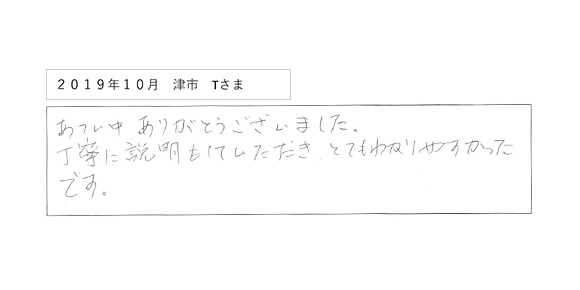 2019年10月 津市 Tさま
あつい中 ありがとうございました。
丁寧に説明もしていただき、とてもわかりやすかった
です。